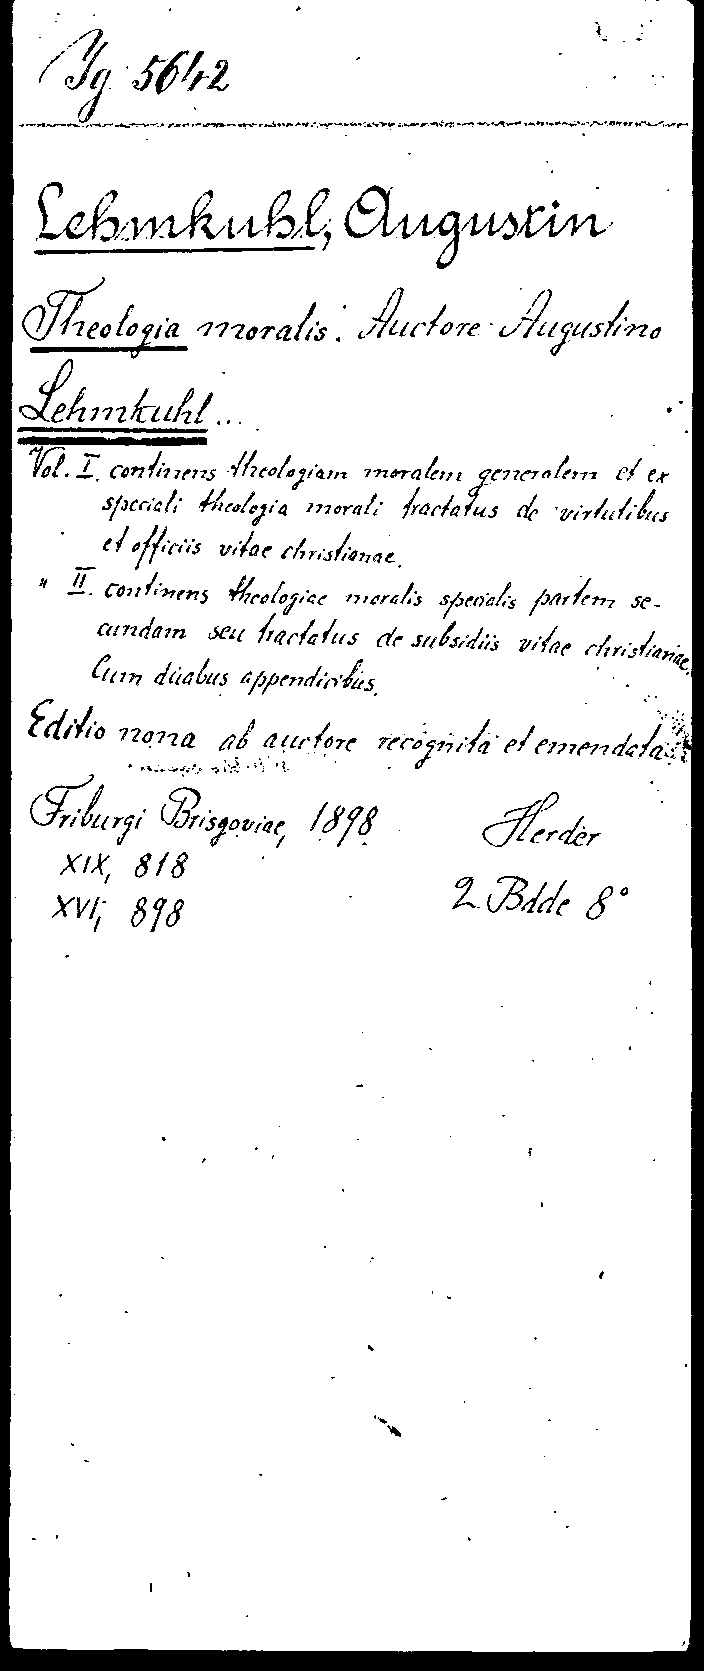 Jg 5642
Lehmkuhl, Augustin
Theologia moralis. Auctore Augustino
Lehmkuhl...
Vol. I. continens theologiam moralem generalem et ex
speciali theologia morali tractatus de virtutibus
et officiis vitae christianae.
" II. continens theologiae moralis specialis partem se-
cundam seu tractatus de subsidiis vitae christianae.
Cum duabus appendicibus.
Editio nona ab auctore recognita et emendata
Friburgi Brisgoviae, 1898 Herder
XIX, 818
XVI, 898 2 Bdde 8°